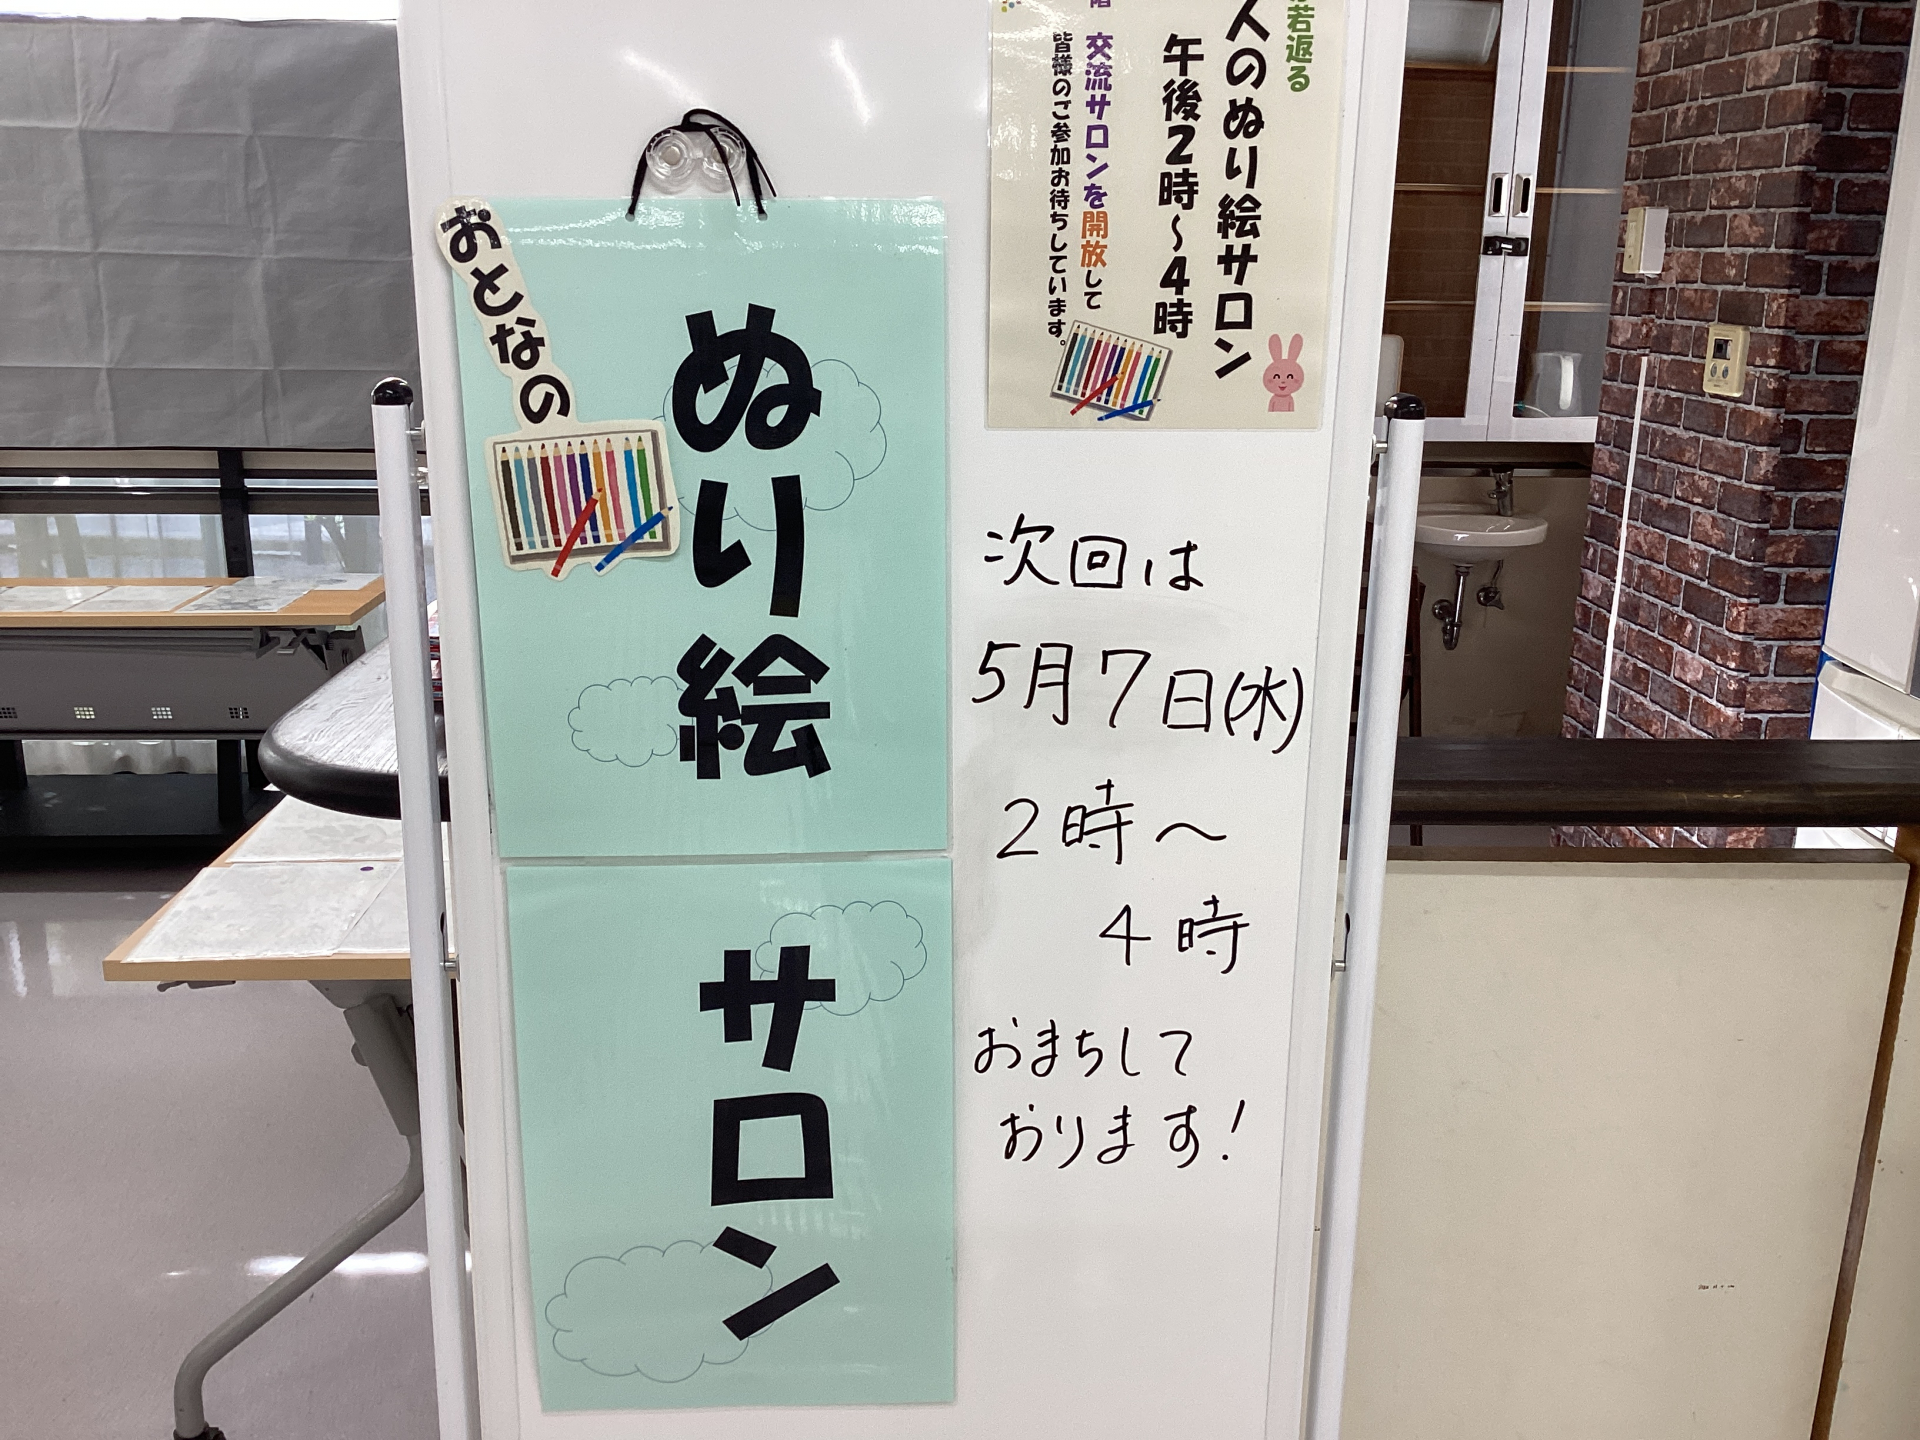 おとなの
ぬり絵
サロン
若返る
人のぬり絵サロン
午後2時～4時
交流サロンを開放して
皆様のご参加お待ちしています。
次回は
5月7日(水)
2時～
4時
おまちして
おります!